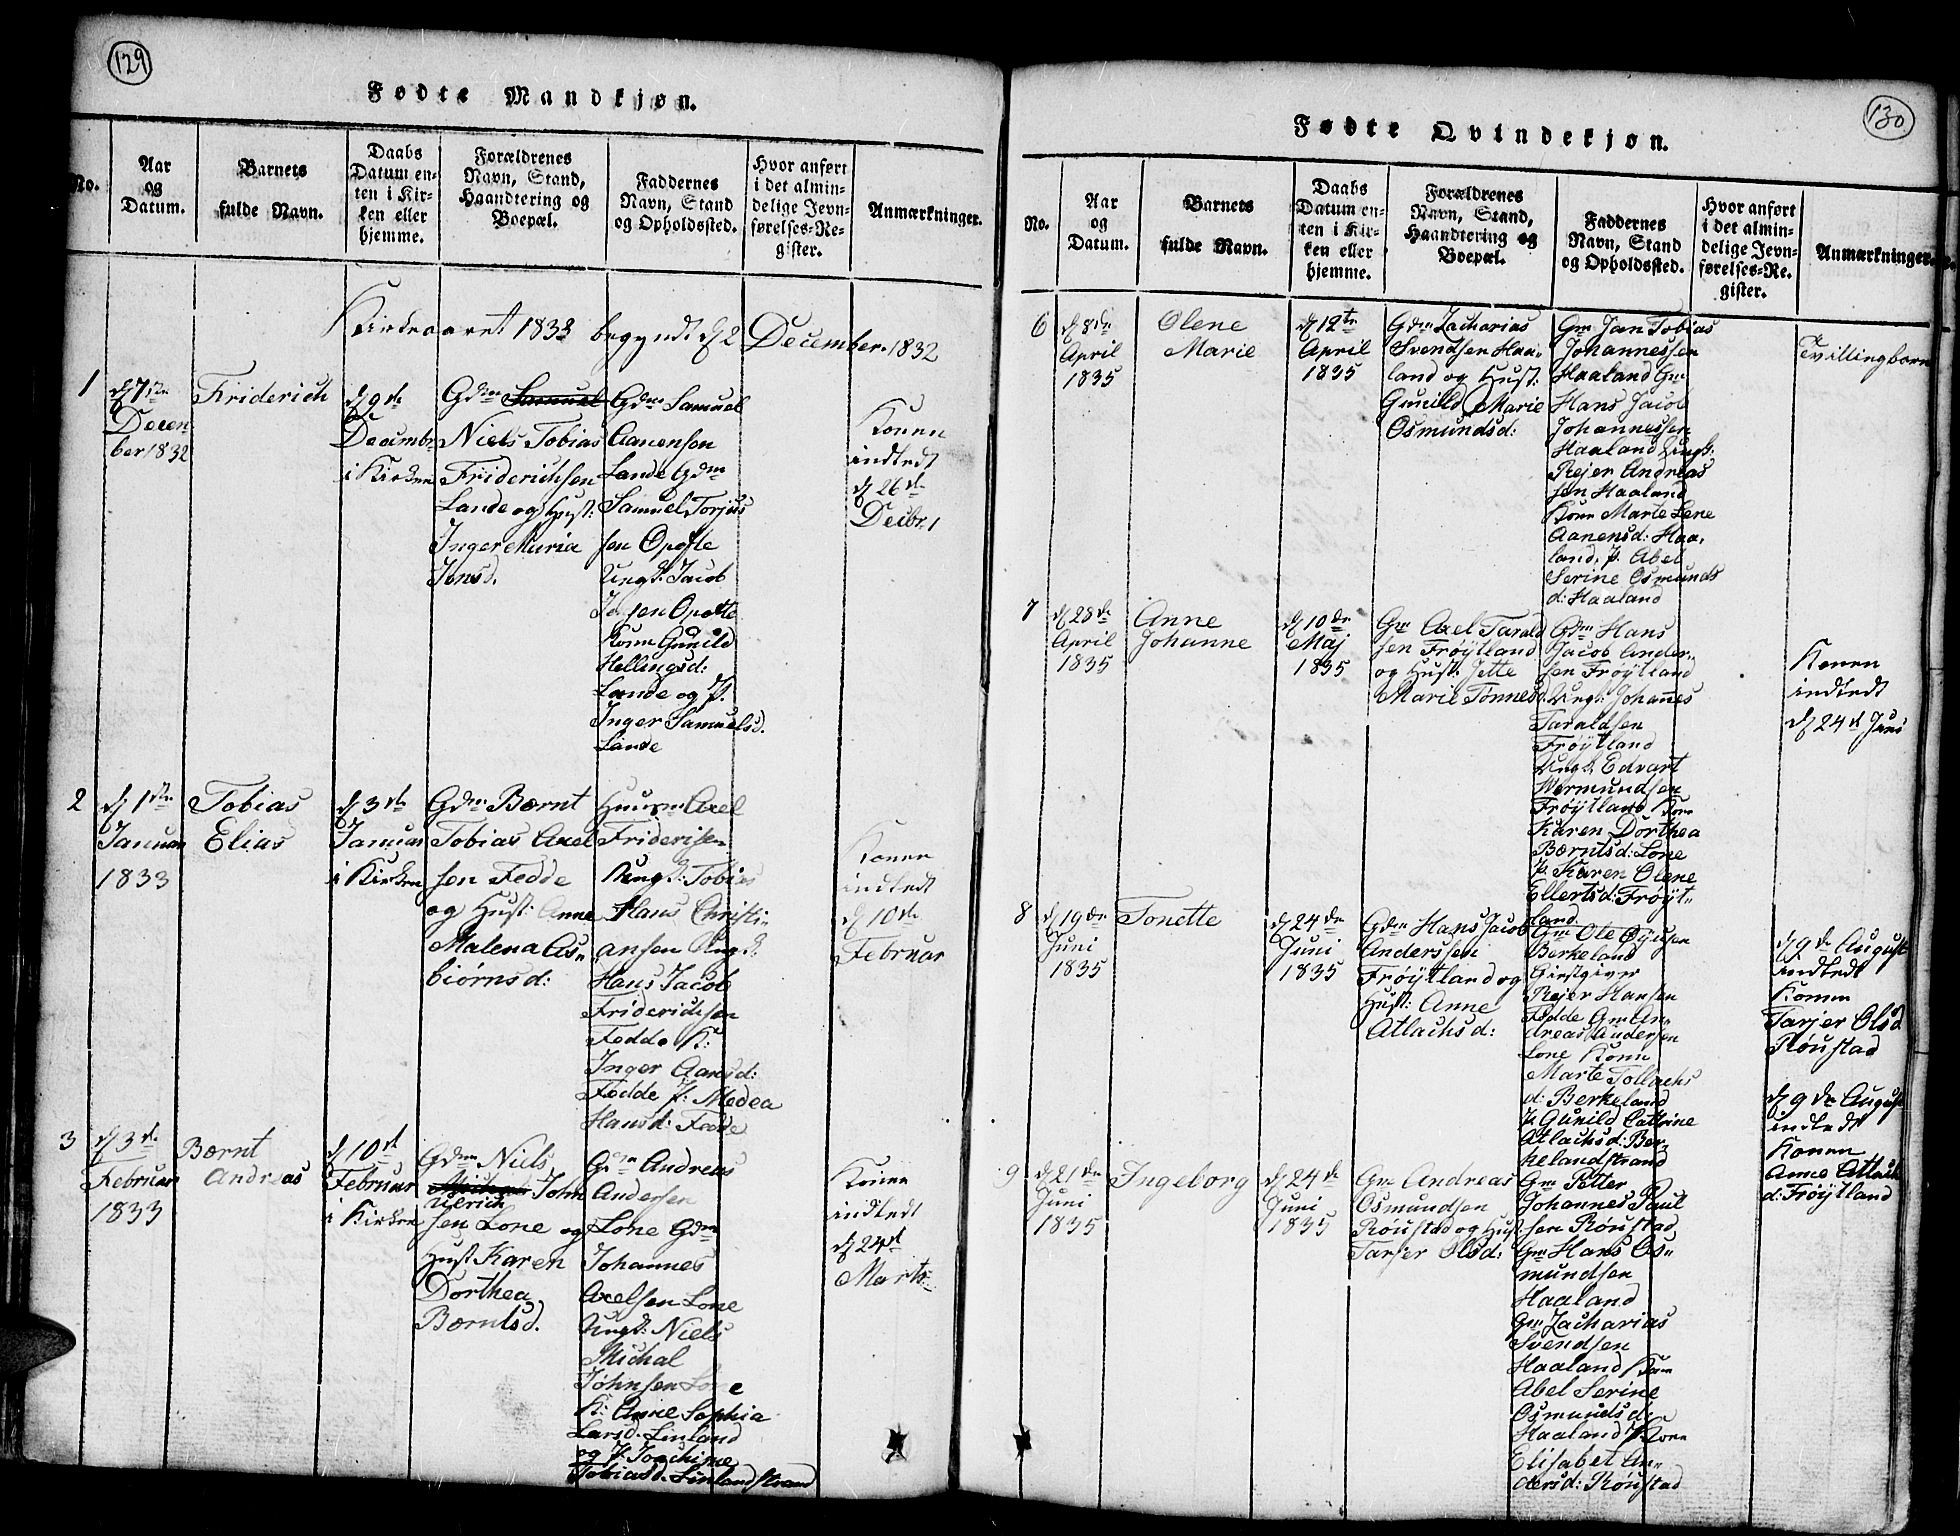 129
Fødte Mandkjøn.
No.
Aar
og
Datum.
Barnets
fulde Navn.
Daabs
Datum en-
ten i Kir-
ken eller
hjemme.
Forældrenes
Navn, Stand,
Haandtering og
Boepæl.
Faddernes
Navn, Stand
og Opholdssted.
Hvor anført
i det almin-
delige Jevn-
førelses-Re-
gister.
Anmærkninger.
Kirkeaaret 1833 begyndt d 2 December 1832
1
d 7de
Decem
ber 1832
Friderich
d 9de
Decembr
i Kirken
Gdm Samuel
Niels Tobias
Friderichsen
Lande og Hust:
Inger Maria
Jensd.
Gdm Samuel
Aanensen
Lande Gdm
Samuel Torjus
sen Opofte
Ungk: Jacob
sen Opofte
Kone Gunild
Hellingsd:
Lande og P.
Inger Samuelsd.
Lande
Konen
indledt
d 26de
Decbr.
2
d 1ste
Januar
1833
Tobias
Elias
d 3de
Januar
i Kirken
Gdm Bærnt
Tobias Axel
sen Fedde
og Hust: Anne
Malena As„
biørnsd:
Huusm Axel
Friderichsen
Ungk: Tobias
Hans Christi„
ansen Ungk:
Hans Jacob
Friderichsen
Fedde K:
Inger Aansd:
Fedde P: Medea
Hansd: Fedde
Konen
indledt
d 10de
Februar
3
d 3de
Februar
1833
Bærnt
Andreas
d 10de
Februar
i Kirken
Gdm Niels
John
Ulerich
sen Lone og
Hust Karen
Dorthea
Bærntsd.
Gdm Andreas
Andersen
Lone Gdm
Johannes
Axelsen Lone
Ungk: Niels
Michal
Johnsen Lone
K: Anne Sophia
Larsd. Linland
og P. Joachime
Tobiasd. Linlandstrand
Konen
indledt
d 24d
Marts
130
Fødte Qvindekjøn.
No.
Aar
og
Datum.
Barnets
fulde Navn.
Daabs
Datum en-
ten i Kir-
ken eller
hjemme.
Forældrenes
Navn, Stand,
Haandtering og
Boepæl.
Faddernes
Navn, Stand
og Opholdssted.
Hvor anført
i det almin-
delige Jevn-
førelses-Re-
gister.
Anmærkninger.
6
d 8de
April
1835
Olene
Marie
d 12te
April
1835
Gdm Zacharias
Svendsen Haa„
land og Hust:
Gunild Marie
Osmundsd:
Gm Jan Tobias
Johannessen
Haaland Gm
Hans Jacob
Johannessen
Haaland Ungk:
Rejer Andreas
sen Haaland
Kone Marte Lene
Aanensd: Haa„
land, P. Abel
Serine Osmunds
d: Haaland
Tvillingbarn
7
d 28de
April
1835
Anne
Johanne
d 10de
Maj
1835
Gm Axel Tarald
sen Frøytland
og Hust: Jette
Marie Tønnesd:
Gdm Hans
Jacob Ander„
sen Frøytland
Ungk: Johannes
Taraldsen
Frøytland
Ungk: Edvart
Wermundsen
Frøytland Kone
Karen Dorthea
Bærntsd: Lone
P. Karen Olene
Ellertsd: Frøyt„
land
Konen
indledt
d 24d Juni
8
d 19de
Juni
1835
Tonette
d 24de
Juni
1835
Gdm Hans Jacob
Anderssen
Frøytland og
Hust: Anne
Atlachsd:
Gm Ole Øyusen
Berkeland
Giestgiver
Rejer Hansen
Fedde Gm An„
dreas Andersen
Lone Kone
Marte Tollachs
d: Berkeland
P. Gunild Cathrine
Atlachsd: Ber„
kelandstrand
d 9de August
indledt
Konen
Tarjer Olsd
Røustad
9
d 21de
Juni
1835
Ingeborg
d 24de
Juni
1835
Gm Andreas
Osmundsen
Røustad og Hust:
Tarjer Olsd:
Gm Petter
Johannes Paul
sen Røustad
Gm Hans Os„
mundsen
Haaland
Gm Zacharias
Svendsen
Haaland Kone
Abel Serine
Osmundsd:
Haaland P. Kone
Elisabet An„
dersd: Røustad
d 9de August
indledt
Konen
Anne Atlach
d: Frøytland